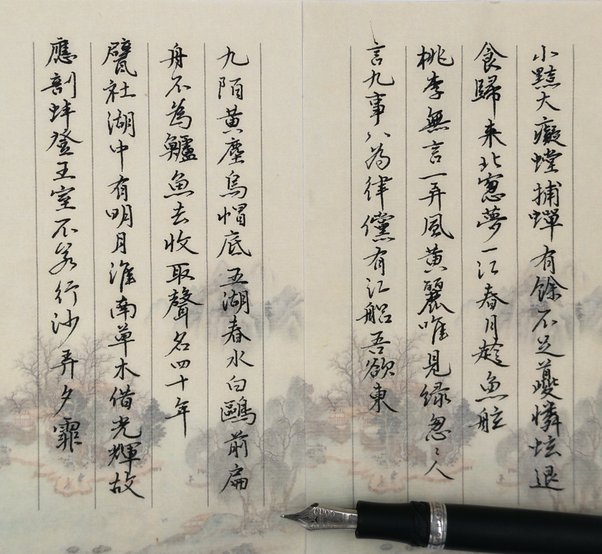 小黠大癡螳捕蟬有餘不足夔憐蚿退
食歸來北窻夢一江春月趁魚舡
桃李無言一再風黃鸝唯見綠怱〻人
言九事八為律儻有江船吾欲東
九陌黃塵烏帽底五湖春水白鷗前扁
舟不為鱸魚去收取聲名四十年
甓社湖中有明月淮南草木借光輝故
應剖蚌登王室不若行沙弄夕霏